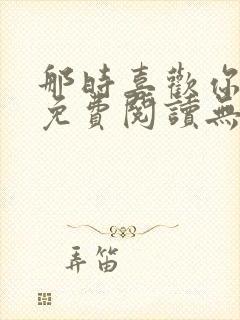 那時喜歡你
免費閱讀無
弄笛